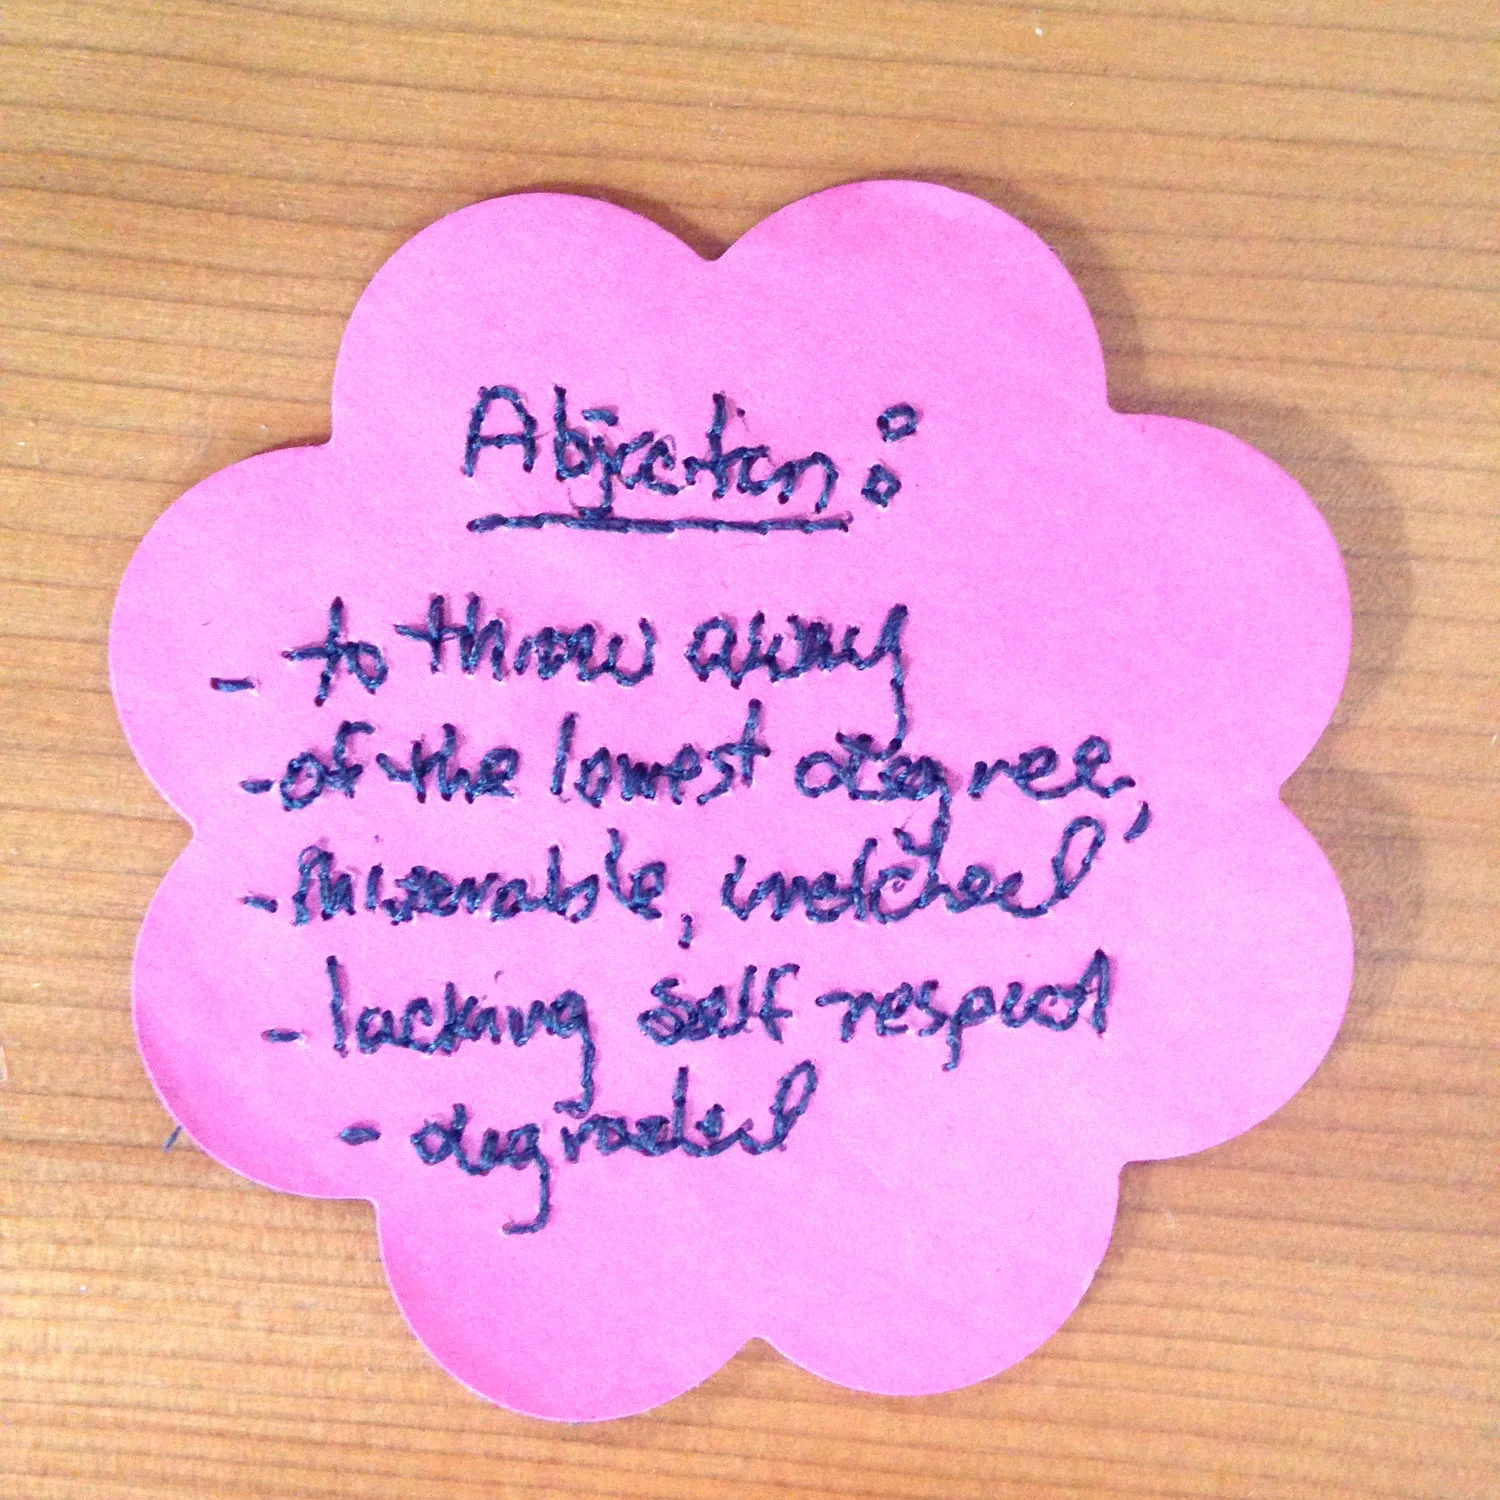 Abjection:
- to throw away
- of the lowest degree,
- miserable, wretched
- lacking self respect
- degraded